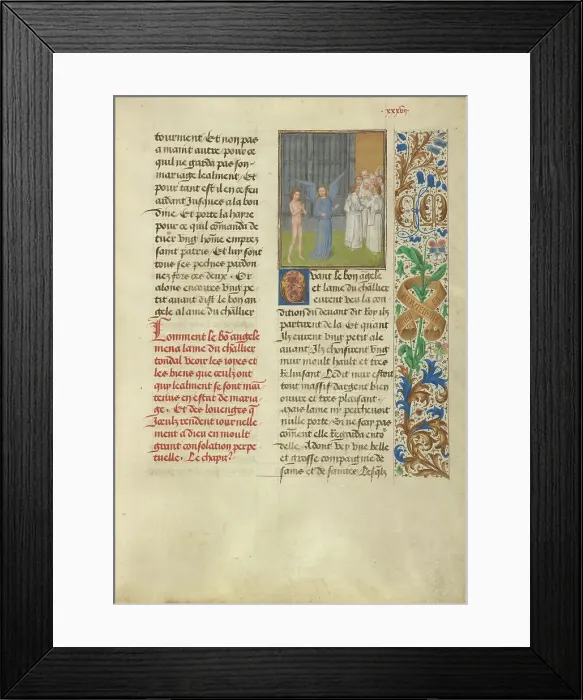 xxxvij
tourment Et non pas
a maint autre pour ce
quil ne garda pas son
mariage lealment Et
pour tant est il en ce feu
ardant Jusques a la bou
dine Et porte la hayre
pour ce quil comanda de
tuer vng home emprez
saint patris Et luy sont
tous ses pechies pardon
nez fors ces deux Or
alons encores vng pe
tit auant dist le bon an
gele a lame du chllier
Comment le bo angele
mena lame du chllier
tondal veoir les ioyes et
les biens que ceulz ont
qui lealment se sont mai
tenus en estat de maria
ge Et des louenges q
Iceulz rendent iournelle
ment a dieu en moult
grant consolation perpe
tuelle Le chapit
Quant le bon agele
et lame du chllier
eurent veu la con
dition du deuant dit Roy ilz
partirent de la Et quant
Ilz eurent vng petit ale
auant Ilz choisirent vng
mur moult hault et tres
Reluisant Ledit mur estoit
tout massif dargent bien
ouure et tres plaisant
mais lame ny percheuoit
nulle porte Si ne scay pas
coment elle Regarda ento
delle Adont vey vne belle
et grosse compaignie de
sains et de saintes Lesqlz
CM